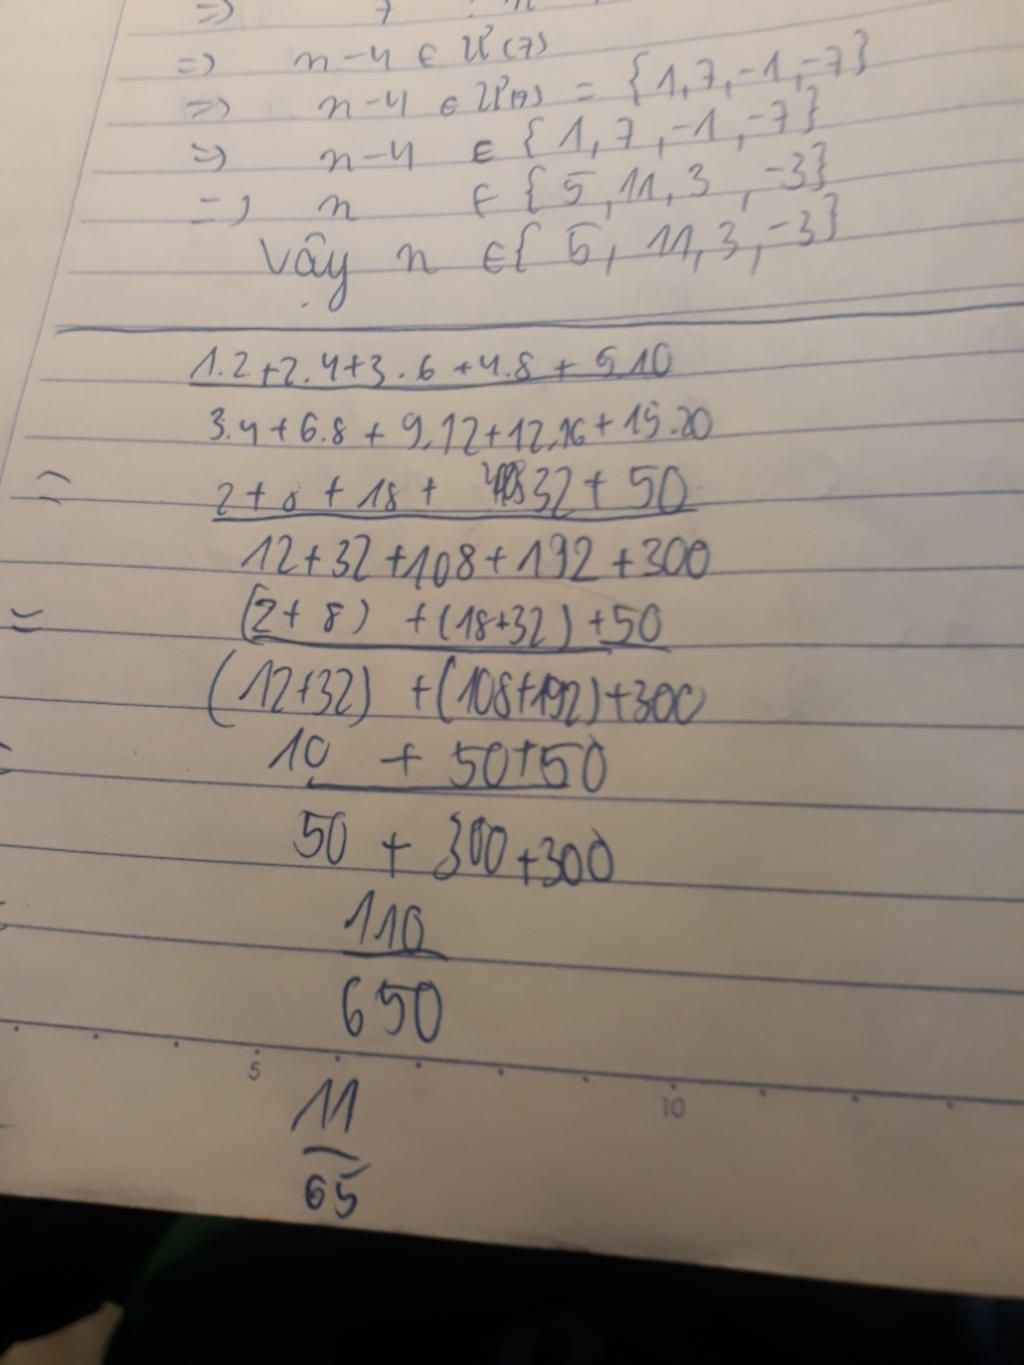 => 7 n
=> n-4 ∈ Ư(7)
=> n-4 ∈ Ư(7) = {1,7,-1,-7}
=> n-4 ∈ {1,7,-1,-7}
=> n ∈ {5,11,3,-3}
Vậy n ∈ {5,11,3,-3}
1.2+2.4+3.6+4.8+5.10
3.4+6.8+9.12+12.16+15.20
= 2+8+18+32+50
12+32+108+192+300
= (2+8)+(18+32)+50
(12+32)+(108+192)+300
10+50+50
50+300+300
110
650
5 10
11
65